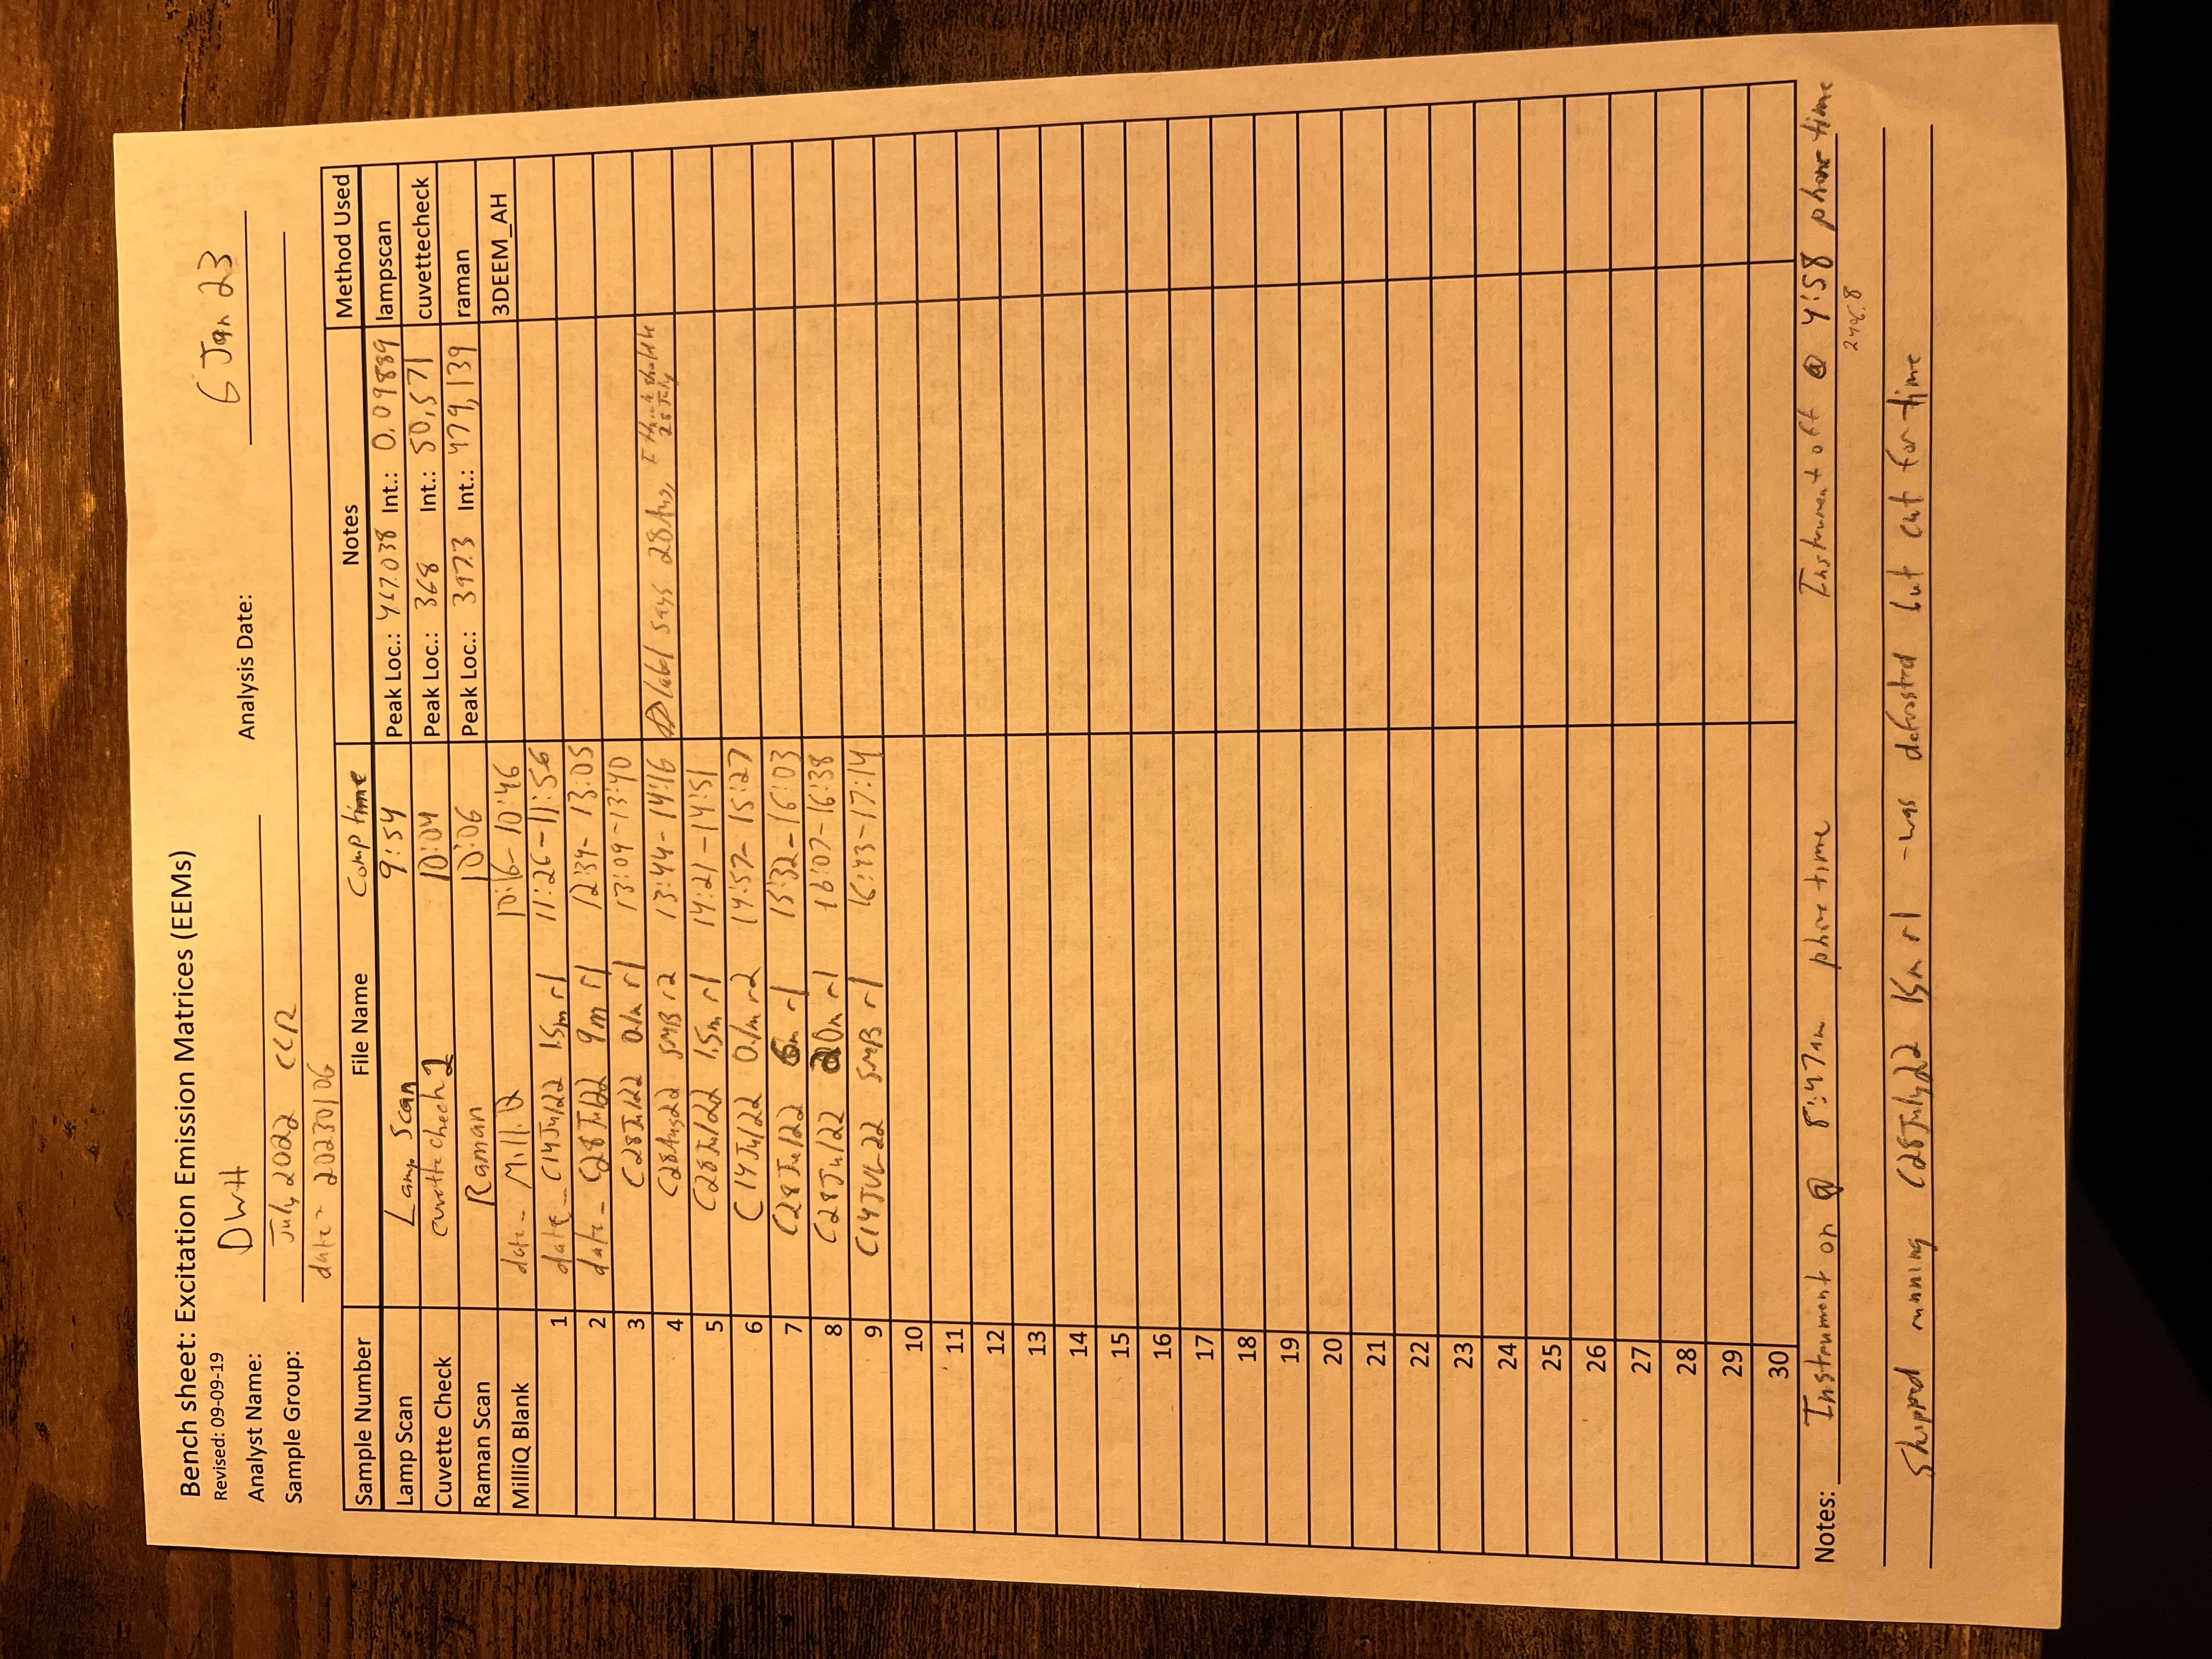 Bench sheet: Excitation Emission Matrices (EEMs)
Revised: 09-09-19
Analyst Name: DWH Analysis Date: 6 Jan 23
Sample Group: July 2022 CCR
date = 20230106
Sample Number File Name Comp time Notes Method Used
Lamp Scan Lamp Scan 9:54 Peak Loc.: 467.038 Int.: 0.09889 lampscan
Cuvette Check cuvettecheck2 10:04 Peak Loc.: 368 Int.: 50,571 cuvettecheck
Raman Scan Raman 10:06 Peak Loc.: 397.3 Int.: 479,139 raman
MilliQ Blank date_ MilliQ 10:16-10:46 3DEEM_AH
1 date_ C14Jul22 1.5m r1 11:26-11:56
2 date_ C28Jul22 9m r1 12:34-13:05
3 C28Jul22 0.1m r1 13:09-13:40
4 C28Aug22 SMB r2 13:44-14:16 label says 28 Aug, I think should be 28 July
5 C28Jul22 1.5m r1 14:21-14:51
6 C14Jul22 0.1m r2 14:57-15:27
7 C28Jul22 6m r1 15:32-16:03
8 C28Jul22 20m r1 16:07-16:38
9 C14JUL22 SMB r1 16:43-17:14
10
11
12
13
14
15
16
17
18
19
20
21
22
23
24
25
26
27
28
29
30
Notes: Instrument on @ 8:47am phone time Instrument off @ 4:58 phone time
2406.8
Skipped running C28July22 15m r1 - was defrosted but cut for time